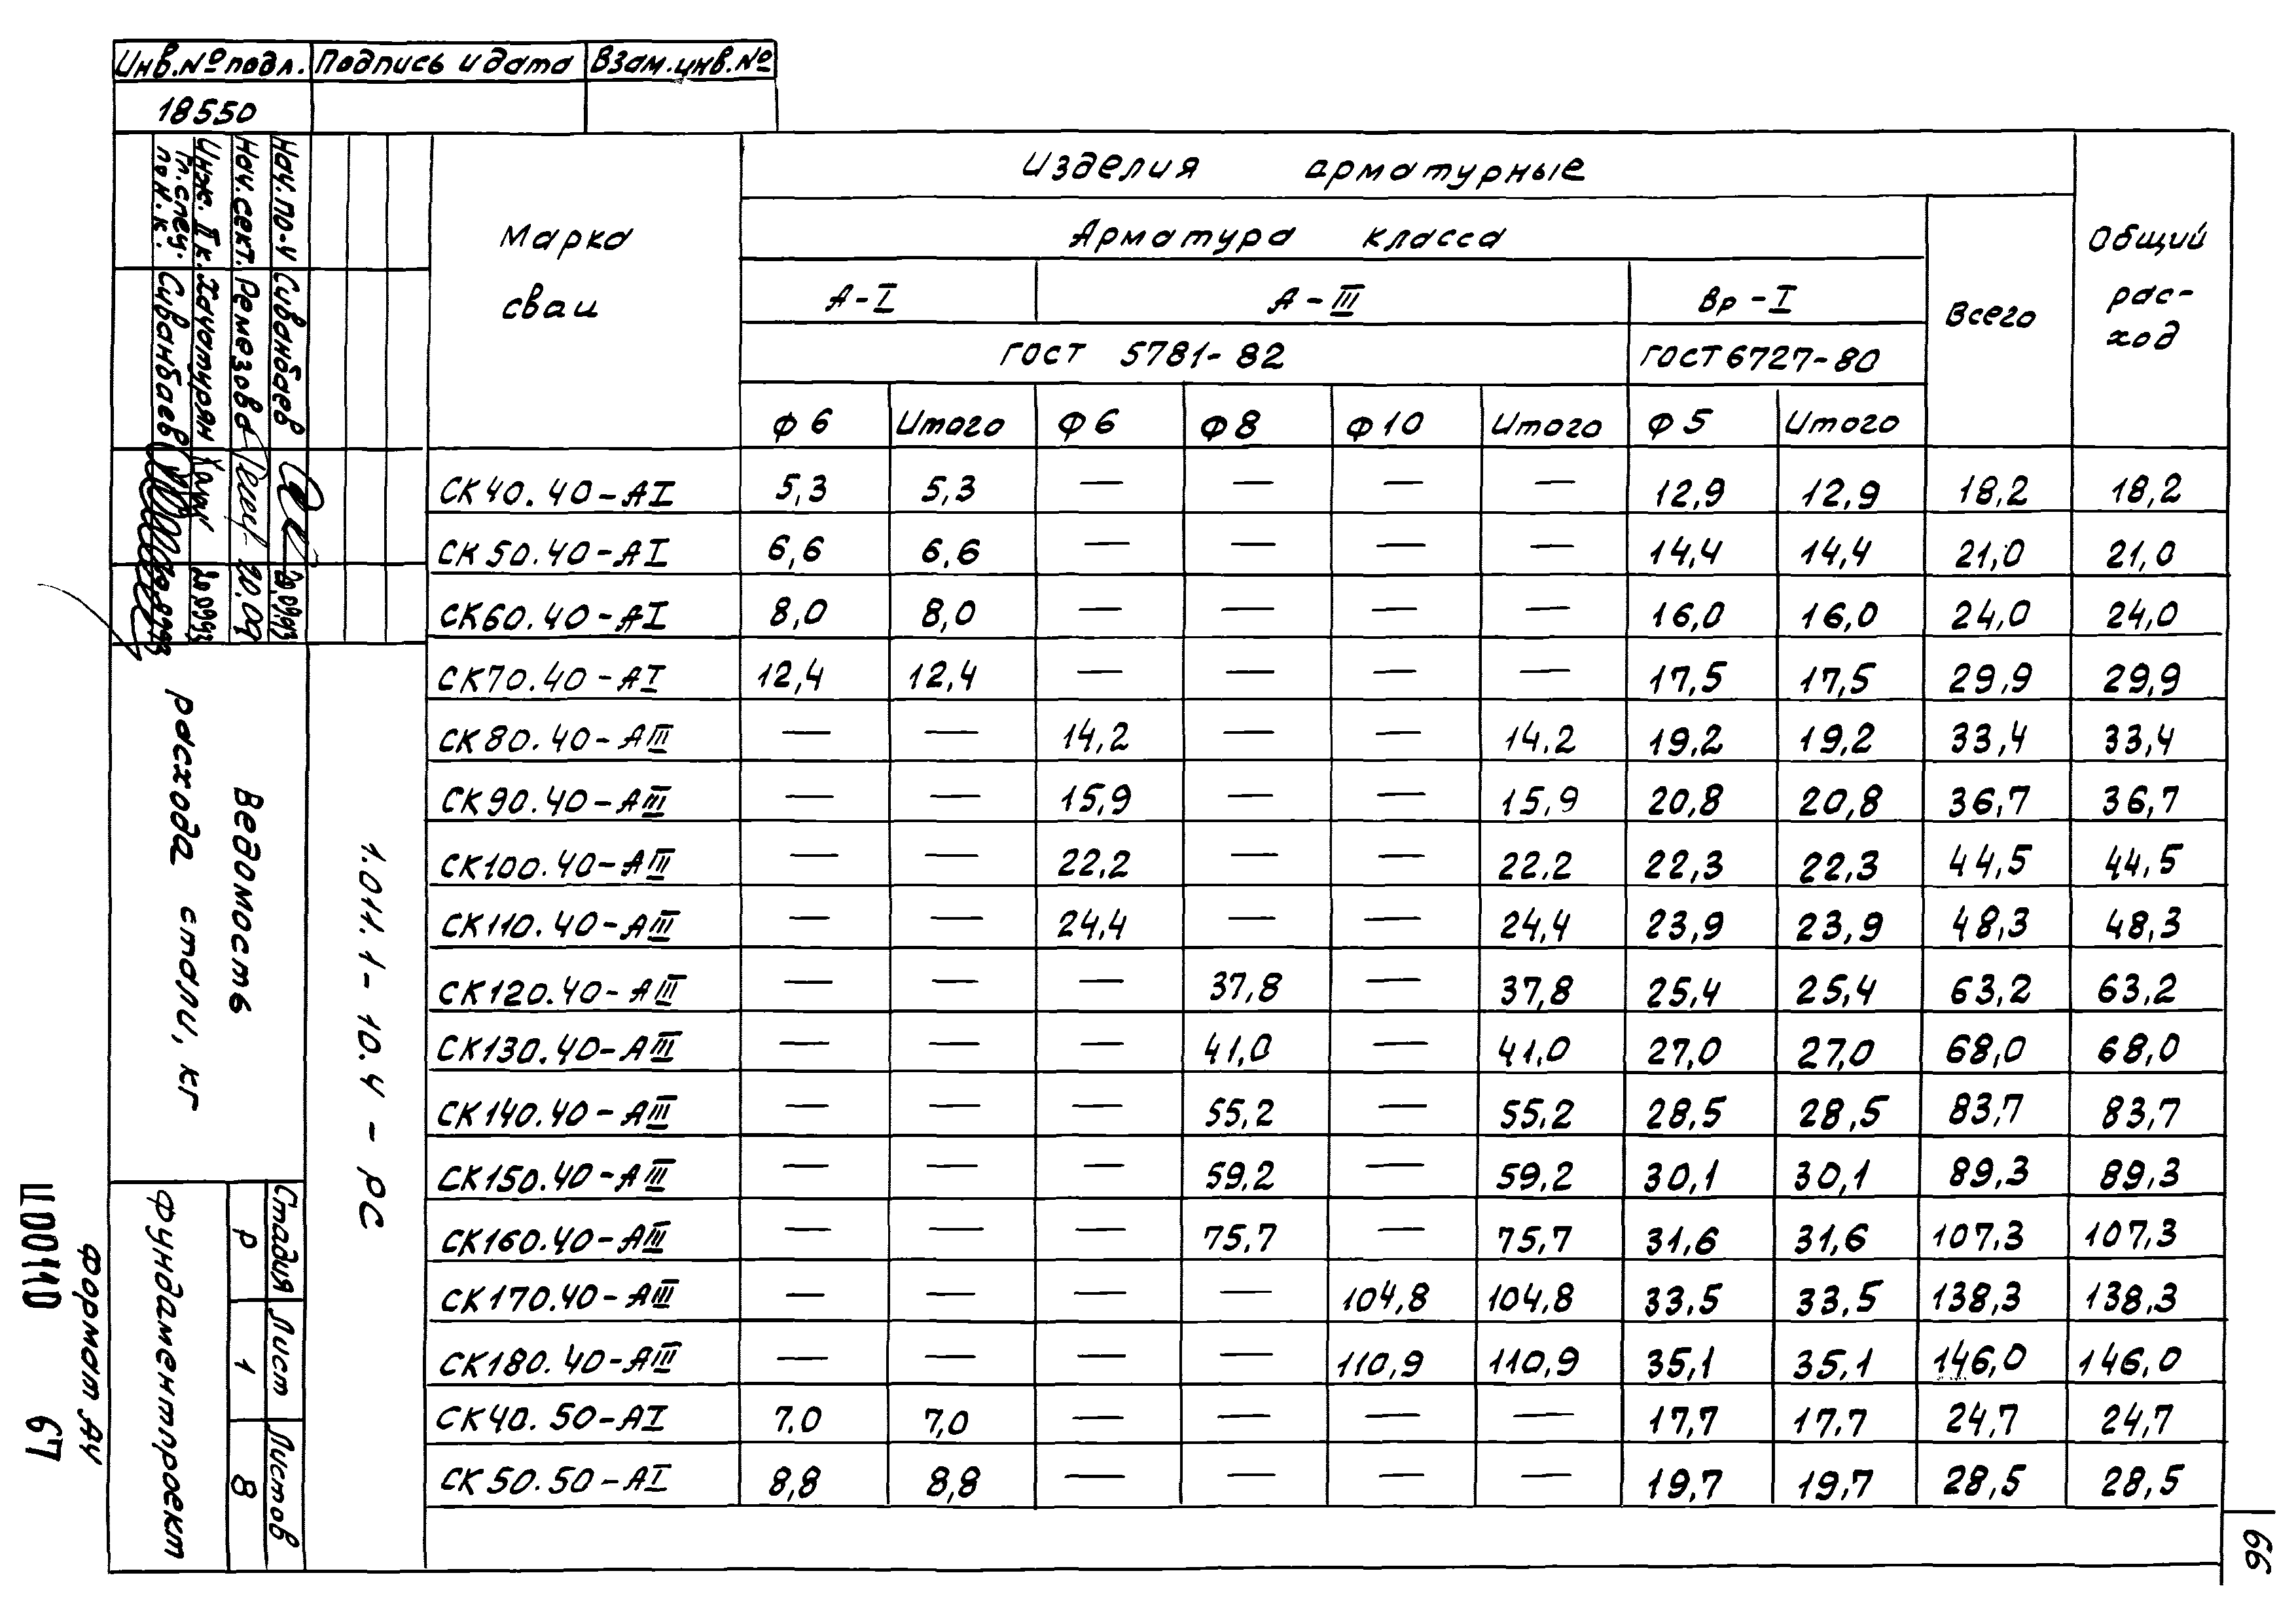 Инв.№ подл. Подпись и дата Взам.инв.№
18550
Марка сваи
Изделия арматурные
Общий рас-ход
Арматура класса
Всего
А-I А-III Вр-I
ГОСТ 5781-82 ГОСТ 6727-80
Ф6 Итого Ф6 Ф8 Ф10 Итого Ф5 Итого
СК40.40-АI 5,3 5,3 — — — — 12,9 12,9 18,2 18,2
СК50.40-АI 6,6 6,6 — — — — 14,4 14,4 21,0 21,0
СК60.40-АI 8,0 8,0 — — — — 16,0 16,0 24,0 24,0
СК70.40-АI 12,4 12,4 — — — — 17,5 17,5 29,9 29,9
СК80.40-АIII — — 14,2 — — 14,2 19,2 19,2 33,4 33,4
СК90.40-АIII — — 15,9 — — 15,9 20,8 20,8 36,7 36,7
СК100.40-АIII — — 22,2 — — 22,2 22,3 22,3 44,5 44,5
СК110.40-АIII — — 24,4 — — 24,4 23,9 23,9 48,3 48,3
СК120.40-АIII — — — 37,8 — 37,8 25,4 25,4 63,2 63,2
СК130.40-АIII — — — 41,0 — 41,0 27,0 27,0 68,0 68,0
СК140.40-АIII — — — 55,2 — 55,2 28,5 28,5 83,7 83,7
СК150.40-АIII — — — 59,2 — 59,2 30,1 30,1 89,3 89,3
СК160.40-АIII — — — 75,7 — 75,7 31,6 31,6 107,3 107,3
СК170.40-АIII — — — — 104,8 104,8 33,5 33,5 138,3 138,3
СК180.40-АIII — — — — 110,9 110,9 35,1 35,1 146,0 146,0
СК40.50-АI 7,0 7,0 — — — — 17,7 17,7 24,7 24,7
СК50.50-АI 8,8 8,8 — — — — 19,7 19,7 28,5 28,5
Нач. по-ч Сиванбаев
Нач. сект. Ремезова 20.09
Инж. IIк. Хачатурян
Гл. спец. по Н.К. Сиванбаев
1.011.1-10.4-РС
Ведомость
расхода стали, кг
Стадия Лист Листов
Р 1 8
Фундаментпроект
формат А4
Ц00110 67
66